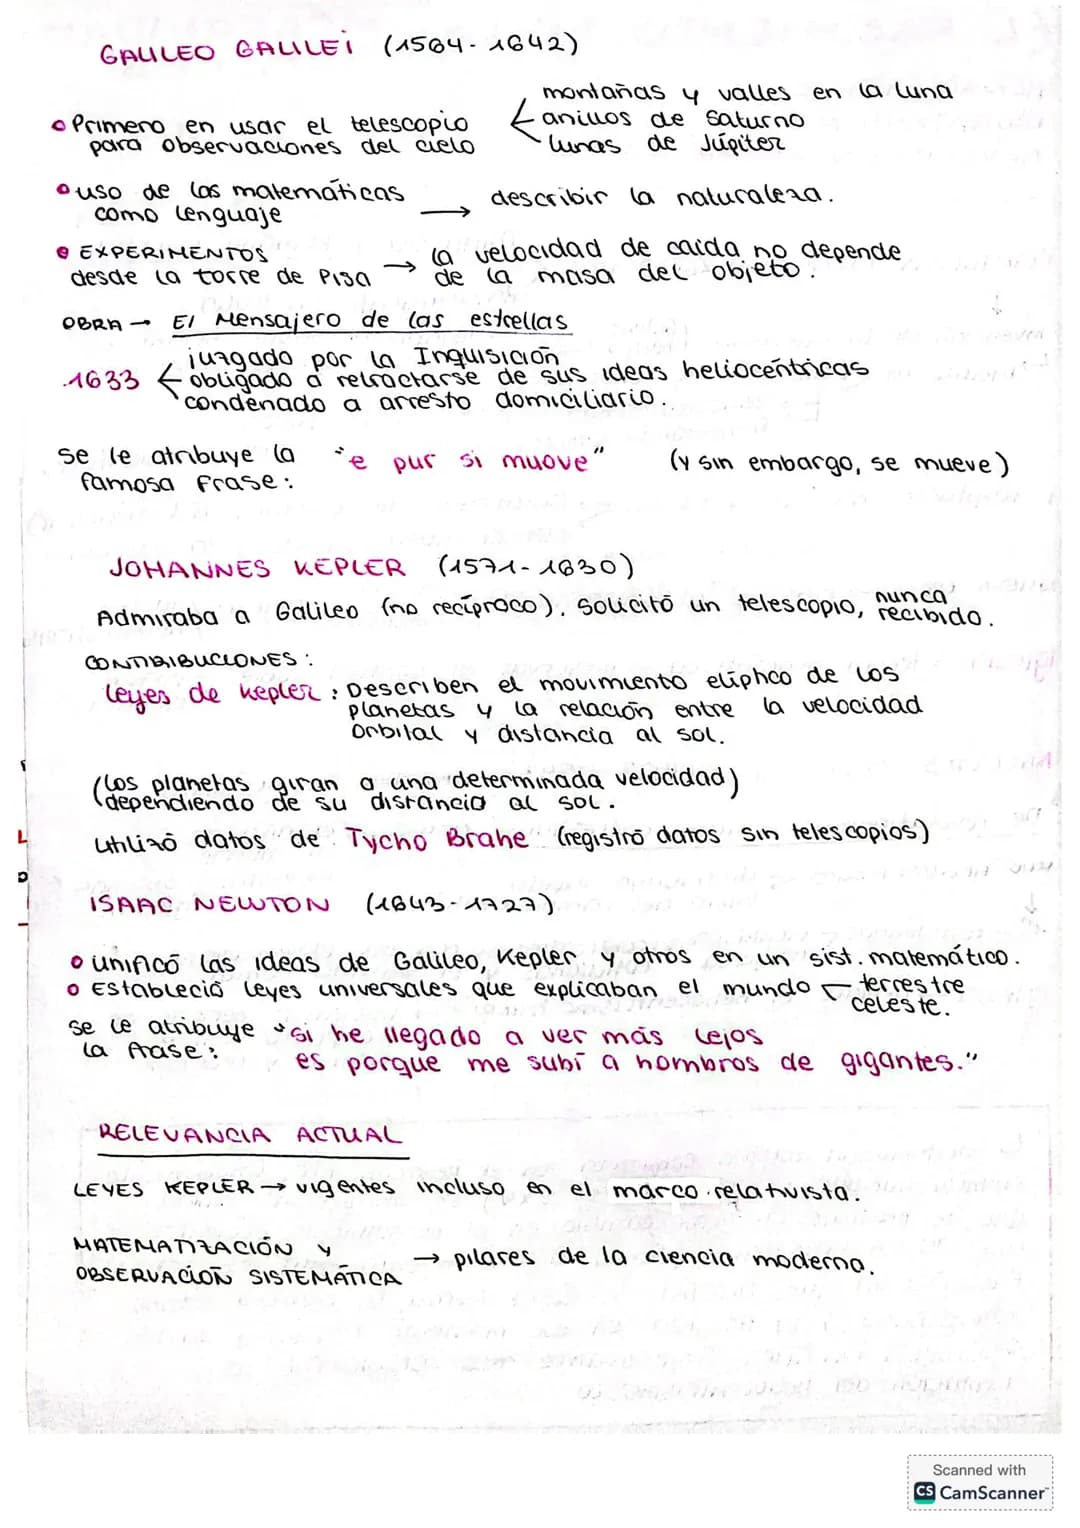 GALILEO GALILEI (1564-1642)
montañas y valles en la luna
• Primero en usar el telescopio
anillos de Saturno
para observaciones del cielo
lunas de Júpiter
• uso de las matemáticas
como lenguaje → describir la naturaleza.
• EXPERIMENTOS → la velocidad de caída no depende
desde la torre de Pisa de la masa del objeto.
OBRA → El Mensajero de las estrellas
juzgado por la Inquisición
.1633 obligado a retractarse de sus ideas heliocéntricas
condenado a arresto domiciliario.
se le atribuye la "e pur si muove" (y sin embargo, se mueve)
famosa frase:
JOHANNES KEPLER (1571-1630)
Admiraba a Galileo (no recíproco). Solicitó un telescopio, nunca
recibido.
CONTRIBUCIONES:
Leyes de Kepler: Describen el movimiento elíptico de los
planetas y la relación entre la velocidad
orbital y distancia al sol.
(Los planetas giran a una determinada velocidad)
dependiendo de su distancia al sol.
Utilizó datos de Tycho Brahe (registró datos sin telescopios)
ISAAC NEWTON (1643-1727)
• Unificó las ideas de Galileo, Kepler y otros en un sist. matemático.
• Estableció leyes universales que explicaban el mundo terrestre
celeste.
se le atribuye "si he llegado a ver más lejos
la frase: es porque me subí a hombros de gigantes."
RELEVANCIA ACTUAL
LEYES KEPLER → vigentes incluso en el marco relativista.
MATEMATIZACIÓN y
OBSERVACIÓN SISTEMÁTICA → pilares de la ciencia moderna.
Scanned with
CS CamScanner